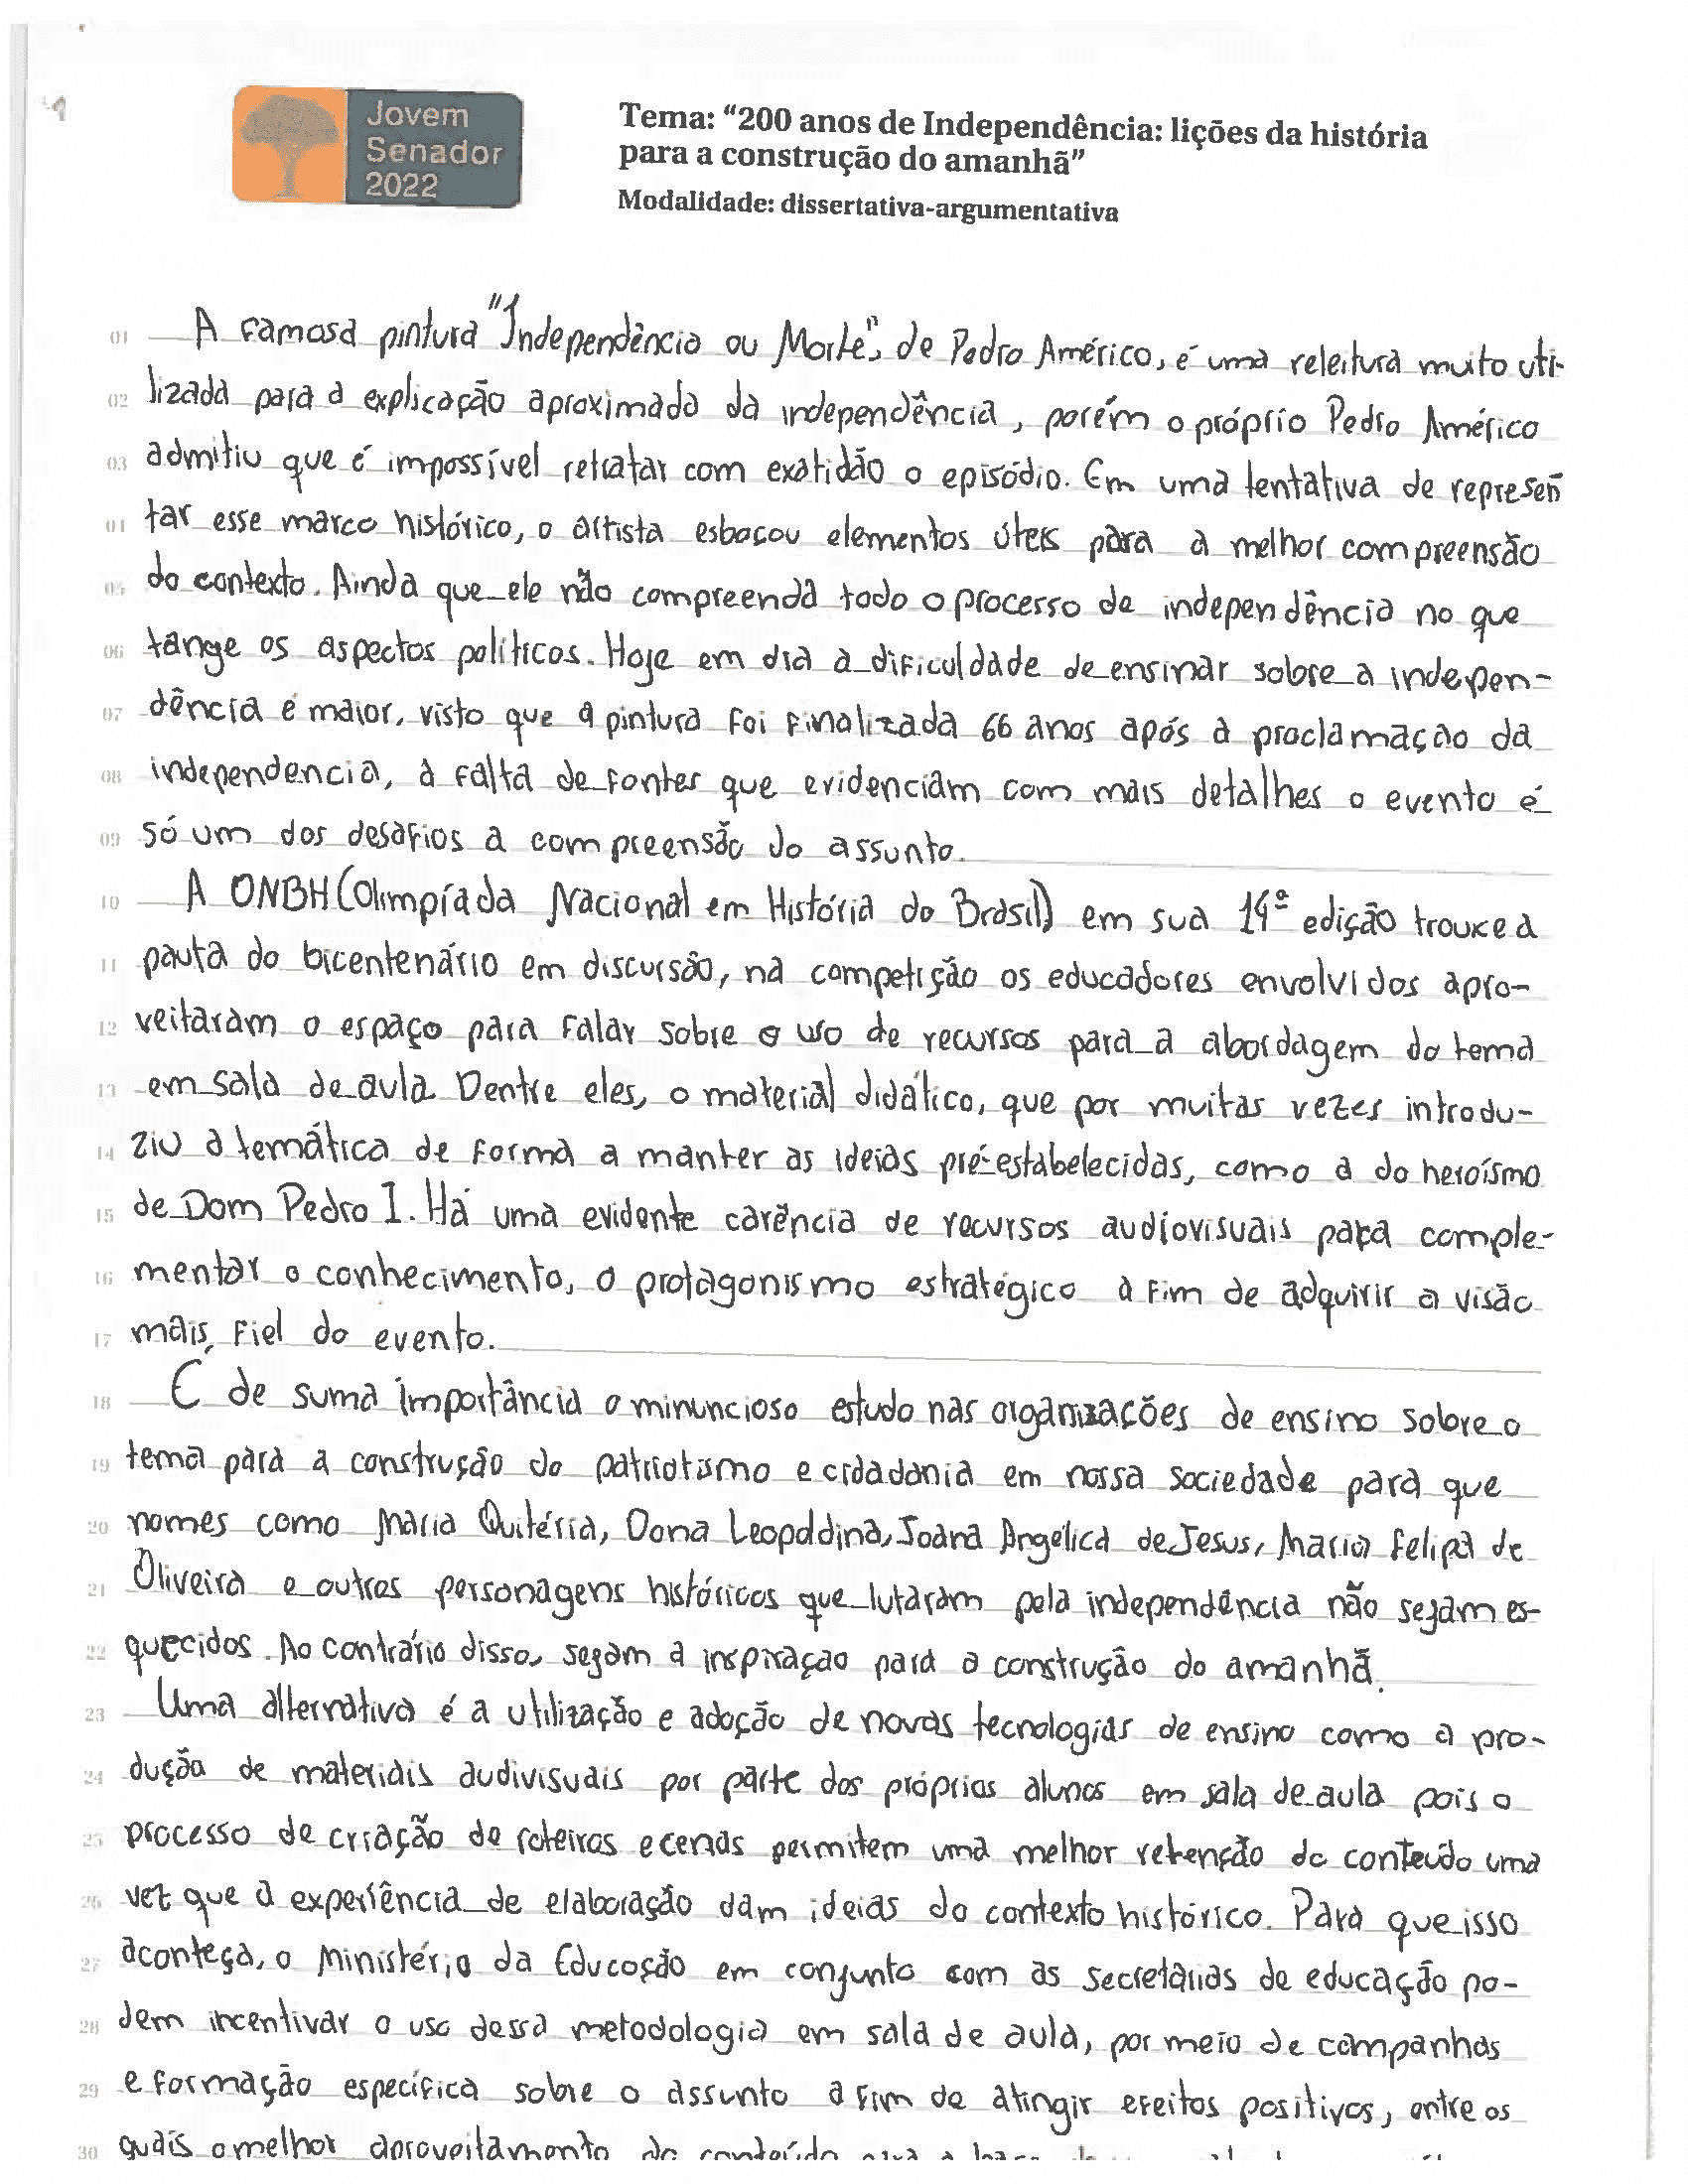 Jovem
Senador
2022
Tema: “200 anos de Independência: lições da história
para a construção do amanhã”
Modalidade: dissertativa-argumentativa
01 A famosa pintura "Independência ou Morte", de Pedro Américo, é uma releitura muito uti-
02 lizada para a explicação aproximada da independência, porém o próprio Pedro Américo
03 admitiu que é impossível retratar com exatidão o episódio. Em uma tentativa de represen
04 tar esse marco histórico, o artista esboçou elementos úteis para a melhor compreensão
05 do contexto. Ainda que ele não compreenda todo o processo de independência no que
06 tange os aspectos políticos. Hoje em dia a dificuldade de ensinar sobre a indepen-
07 dência é maior, visto que a pintura foi finalizada 66 anos após a proclamação da
08 independencia, a falta de fontes que evidenciam com mais detalhes o evento é
09 só um dos desafios a compreensão do assunto.
10 A ONBH (Olimpíada Nacional em História do Brasil) em sua 14ª edição trouxe a
11 pauta do bicentenário em discursão, na competição os educadores envolvidos apro-
12 veitaram o espaço para falar sobre o uso de recursos para a abordagem do tema
13 em sala de aula. Dentre eles, o material didático, que por muitas vezes introdu-
14 ziu a temática de forma a manter as ideias pré-estabelecidas, como a do heroísmo
15 de Dom Pedro I. Há uma evidente carência de recursos audiovisuais para comple-
16 mentar o conhecimento, o protagonismo estratégico a fim de adquirir a visão
17 mais fiel do evento.
18 É de suma importância o minuncioso estudo nas organizações de ensino sobre o
19 tema para a construção do patriotismo e cidadania em nossa sociedade para que
20 nomes como Maria Quitéria, Dona Leopoldina, Joana Angélica de Jesus, Maria Felipa de
21 Oliveira e outros personagens históricos que lutaram pela independência não sejam es-
22 quecidos. Ao contrário disso, sejam a inspiração para a construção do amanhã.
23 Uma alternativa é a utilização e adoção de novas tecnologias de ensino como a pro-
24 dução de materiais audivisuais por parte dos próprios alunos em sala de aula pois o
25 processo de criação de roteiros e cenas permitem uma melhor retenção do conteúdo uma
26 vez que a experiência de elaboração dam ideias do contexto histórico. Para que isso
27 aconteça, o Ministério da Educação em conjunto com as secretarias de educação po-
28 dem incentivar o uso dessa metodologia em sala de aula, por meio de campanhas
29 e formação específica sobre o assunto a fim de atingir efeitos positivos, entre os
30 quais o melhor aproveitamento do conteúdo para a